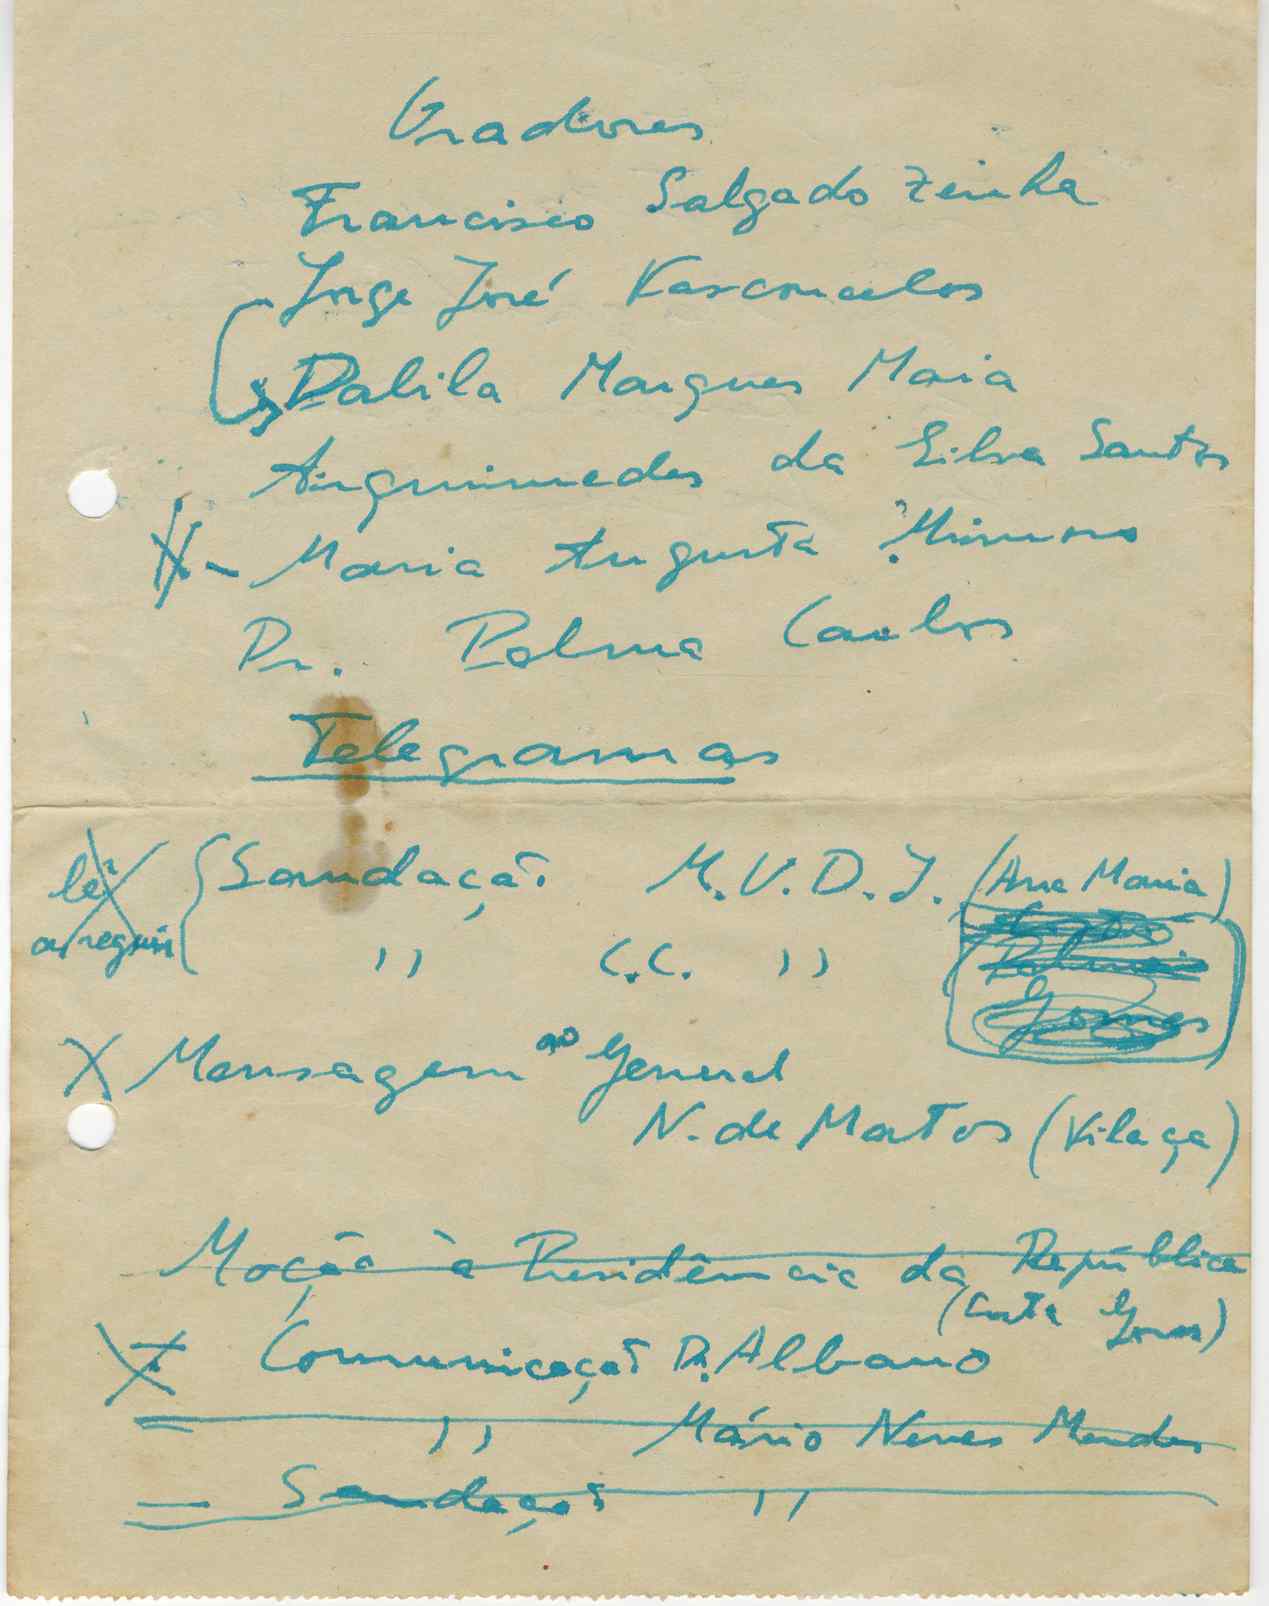 Oradores
Francisco Salgado Zenha
Jorge José Vasconcelos
Dalila Marques Maia
Arquimedes da Silva Santos
X - Maria Augusta ?
Dr. Palma Carlos
Telegramas
lê X Saudação M.V.D.J. (Ana Maria)
a seguir ,, C.C. ,,
Gomes
X Mensagem ao General
N. de Matos (Vilaça)
Moção à Presidência da República
(Costa Gomes)
X Comunicação Dr. Albano
,, Mário Neves Mendes
— Saudação ,,